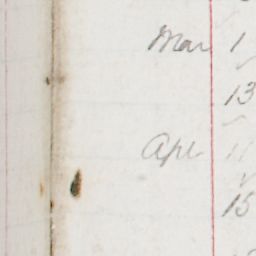 Mar 1
13
Apl 11
15